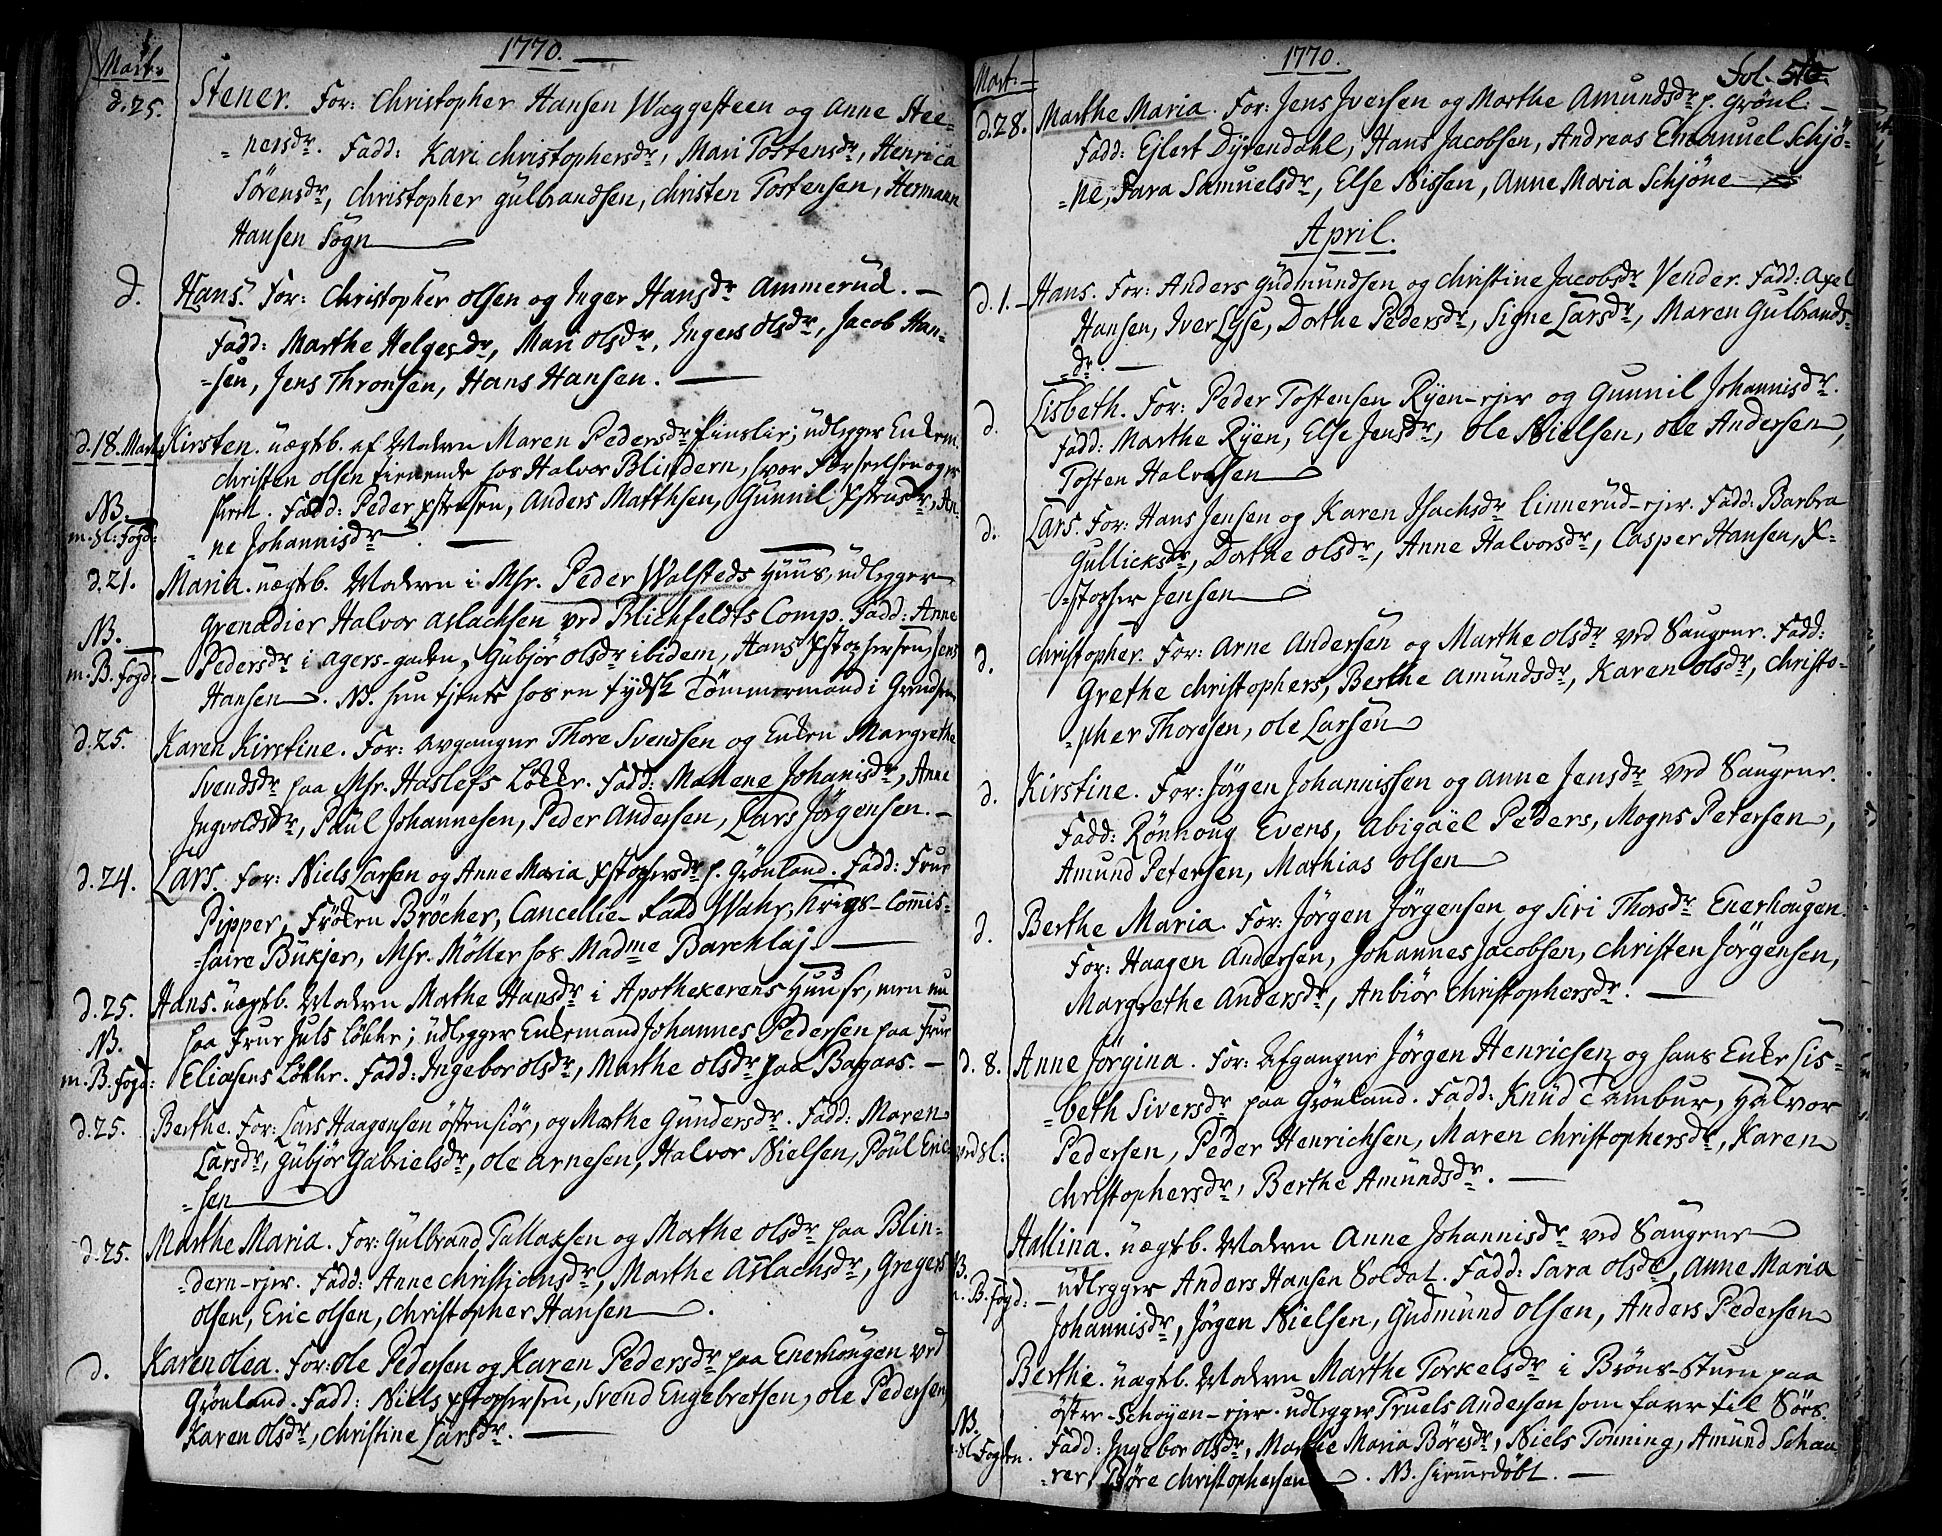 1770.
Mart:
d. 25. Stener. For: Christopher Hansen Waggesteen og Anne Stee=
=nersdr. Fadd: Kari Christophersdr, Mari Tostensdr, Henrica
Sörensdr, Christopher Gulbrandsen, Christen Tostensen, Hermann
Hansen Sogn
d. Hans. For: Christopher Olsen og Inger Hansdr Ammerud. —
Fadd: Marthe Helgesdr, Mari Olsdr, Ingers Olsdr, Jacob Han=
=sen, Jens Thronsen, Hans Hansen. —
d. 18. Mart: Kirsten. uægtb. af Modern Maren Pedersdr Pinslie; udlegger Enkem.
Christen Olsen tienende hos Halvor Blindern, hvor
NB. skeed. Fadd: Peder Xstensen, Anders Matthsen, Gunnil, An=
m. Sl: Fogd: =ne Johannisdr —
d. 21. Maria. uægtb. Modern i Msr. Peder Walsteds Huus, udlegger
Grenadier Halvor Aslachsen ved Blichfeldts Comp. Fadd: Anne
NB.
m. B. Fogd: — Pedersdr i Agers-gaden, Gubjör Olsdr ibidem, Hans Xstophersen, Jens
Hansen. NB. hun tiente hos en tydsk Tömmermand i Grendsen
d. 25. Karen Kirstine. For: Afgangne Thore Svendsen og Enken Margrethe
Svendsdr paa Msr. Haslefs Lökke. Fadd: Mallene Johanisdr, Anne
Ingvoldsdr, Paul Johannesen, Peder Andersen, Lars Jörgensen. —
d. 24. Lars. For: Niels Larsen og Anne Maria Xstophersdr p. Grönland. Fadd: Frue
Pipper, Fröken Bröcher, Cancellie-Raad Wahr, Krigs-Commis=
=saire Bukjer, Msr. Möller hos Madme Barchlaj —
d. 25. Hans. uægtb. Modern Marthe Hansdr i Apothekerens Huuse, men nu
NB. paa Frue Juls Lökke; udlegger Enkemand Johannes Pedersen paa Frue
m. B. Fogd: Eliesens Lökke. Fadd: Ingebor Olsdr, Marthe Olsdr paa Bagaas. —
d. 25. Berthe. For: Lars Haagensen Östensiör, og Marthe Gundersdr. Fadd: Maren
Larsdr, Gubjör Gabrielsdr, Ole Arnesen, Halvor Nielsen, Poul Eric=
=sen
d. 25. Marthe Maria. For: Gulbrand Tallaksen og Marthe Olsdr paa Blin=
=dern-ejer. Fadd: Anne Christjansdr, Marthe Aslachsdr, Gregers
Olsen, Eric Olsen, Christopher Hansen.
d. Karen Olea. For: Ole Pedersen og Karen Pedersdr paa Enerhougen ved
Grönland. Fadd: Niels Xstophersen, Svend Engebretsen, Ole Pedersen,
Karen Olsdr, Christine Larsdr. —
1770.
Fol. 510.
Mart: —
d. 28. Marthe Maria. For: Jens Jversen og Marthe Amundsdr p. Grönl. —
Fadd: Ejlert Dyrendahl, Hans Jacobsen, Andreas Emanuel Schjö=
=ne, Sara Samuelsdr, Else Nissen, Anne Maria Schjöne
April.
d. 1. — Hans. For: Anders Gudmundsen og Christine Jacobsdr Vender. Fadd: Axel
Hansen, Iver Lyse, Dorthe Pedersdr, Signe Larsdr, Maren Gulbrands=
=dr. —
d. Lisbeth. For: Peder Tostensen Ryen-ejer og Gunnil Johannisdr.
Fadd: Marthe Ryen, Else Jensdr, Ole Nielsen, Ole Andersen,
Tosten Halvorsen
d. Lars. For: Hans Jensen og Karen Isachsdr Linnerud-ejer. Fadd: Barbra
Gullicksdr, Dorthe Olsdr, Anne Halvorsdr, Casper Hansen, X=
=stopher Jensen
d. Christopher. For: Arne Andersen og Marthe Olsdr ved Saugene. Fadd:
Grethe Christophers, Berthe Amundsdr, Karen Olsdr, Christo=
=pher Thoresen, Ole Larsen
d. Kirstine. For: Jörgen Johannissen og Anne Jensdr ved Saugene.
Fadd: Rönnoug Evens, Abigaël Peders, Mogns Petersen,
Amund Petersen, Mathias Olsen
d. Berthe Maria. For: Jörgen Jörgensen og Siri Thorsdr Enerhougen.
For: Haagen Andersen, Johannes Jacobsen, Christen Jörgensen,
Margrethe Andersdr, Anbiör Christophersdr. —
d. 8. Anne Jörgina. For: Afgangne Jörgen Henricsen og hans Enke Lis=
=beth Siversdr paa Grönland. Fadd: Knud Tambur, Halvor
ved Sl: Pedersen, Peder Henrichsen, Maren Christophersdr, Karen
Christophersdr, Berthe Amundsdr. —
Hallina. uægtb. Modern Anne Johannisdr ved Saugene
B. Fogd: — udlegger Anders Hansen Soldat. Fadd: Sara Olsdr, Anne Maria
Johannisdr, Jörgen Nielsen, Gudmund Olsen, Anders Pedersen
Berthe. uægtb. Modern Marthe Torkelsdr i Bröns-Stuen paa
Öster-Schöyen-ejer. udlegger Truels Andersen som farer till Söes.
NB.
Sl. Fogden. Fadd: Ingebor Olsdr, Marthe Maria Böresdr, Niels Tonning, Amund Schaa=
=rer, Böre Christophersen. NB. hiemmedöbt. —